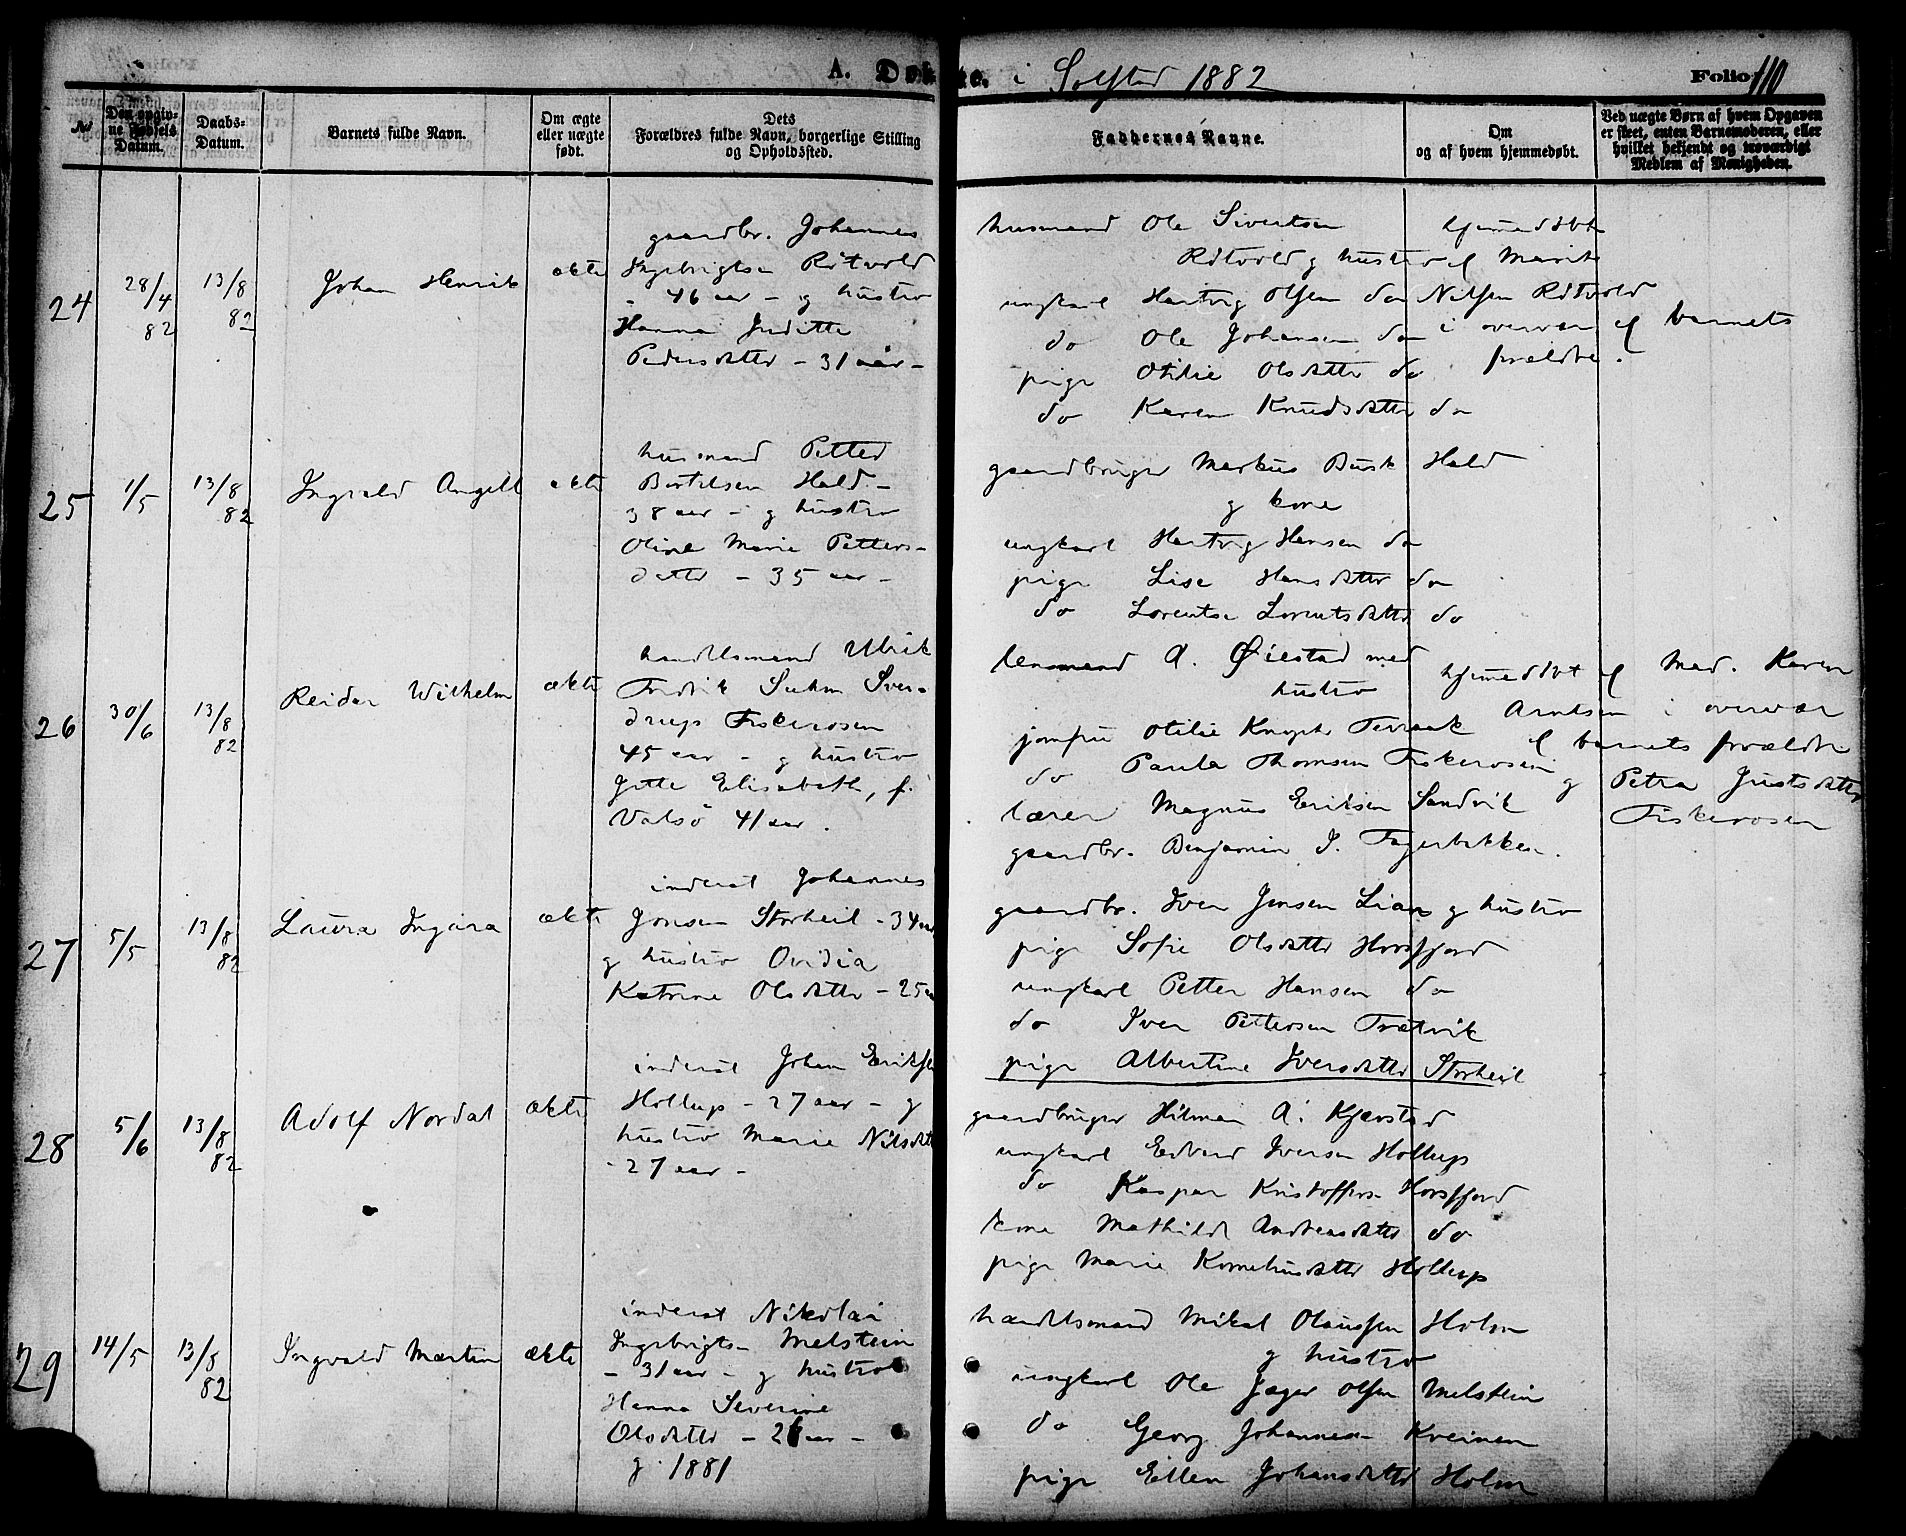 A. Døbte. i Solstad 1882
Folio 110
№
Den opgivne Fødsels Datum.
Daabs-Datum.
Barnets fulde Navn.
Om ægte eller uægte født.
Dets Forældres fulde Navn, borgerlige Stilling og Opholdssted.
Faddernes Navne.
Om og af hvem hjemmedøbt.
Ved uægte Børn af hvem Opgaven er skeet, enten Barnemoderen, eller hvilket bekjendt og troværdigt Medlem af Menigheden.
24
28/4 82
13/8 82
Johan Henrik
ækte
gaardbr. Johannes
Ingebrigtsen
- 46 aar - og hustro
Hanna Juditte
Pedersdatter - 31 aar -
husmand Ole Sivertsen
og hustro
ungkarl Hartvig Olsen do
do Ole Johansen do
pige Otilie Olsdatter do
do Karen Knudsdatter do
hjemmedøbt
af Marit
Nilsen
i overvær af barnets
forældre.
25
1/5
13/8 82
Ingvald Angell
ækte
husmand Petter
Bertelsen Hald -
38 aar - og hustro
Oline Marie Petters-
datter - 35 aar -
gaardbruger Markus Busk Hald
og kone
ungkarl Hartvig Hansen do
pige Lise Hansdatter do
do Lorentse Lorentsdatter do
26
30/6
13/8 82
Reidar Wilhelm
ækte
handelsmand Ulrik
Fredrik Suhm Sver-
drup Fiskerosen
45 aar - og hustro
Jette Elisabeth, f.
Valsø 41 aar.
lensmand A. Øiestad med
hustro
jomfru Otilie Knoph Terraak
do Paula Thomsen Fiskerosen
lærer Magnus Eriksen Sandvik
gaardbr. Benjamin J. Fagerbakken.
hjemmedøbt af Mad. Karen
Arntsen i overvær
af barnets forældre
og Petra Justsdatter
Fiskerosen
27
5/5
13/8 82
Laura Ingvara
ækte
inderst Johannes
Jonsen Storheil - 34 aar
og hustro Ovidia
Katrine Olsdatter - 25 aar
gaardbr. Iver Jensen Lian og hustro
pige Sofie Olsdatter Horsfjord
ungkarl Petter Hansen do
do Iver Pettersen Trætvik
pige Albertine Iversdatter Storheil
28
5/6
13/8 82
Adolf Nordal
ækte
inderst Johan Eriksen
Hollup - 27 aar - og
hustro Marie Nilsdatter
- 27 aar -
gaardbruger Hilmar A. Kjærstad
ungkarl Edvard Iversen Hollup
do Kaspar Kristoffers. Horsfjord
kone Mathilde Andreasdatter do
pige Marie Korneliusdatter Hollup
29
14/5
13/8 82
Ingvald Martin
ækte
inderst Nikolai
Ingebrigts. Melstein
- 31 aar - og hustro
Hanna Severine
Olsdatter - 26 aar -
g. 1881
handelsmand Mikal Olaussen Holm
og hustro
ungkarl Ole Jæger Olsen Melstein
do Georg Johannesen
pige Ellen Johansdatter Holm